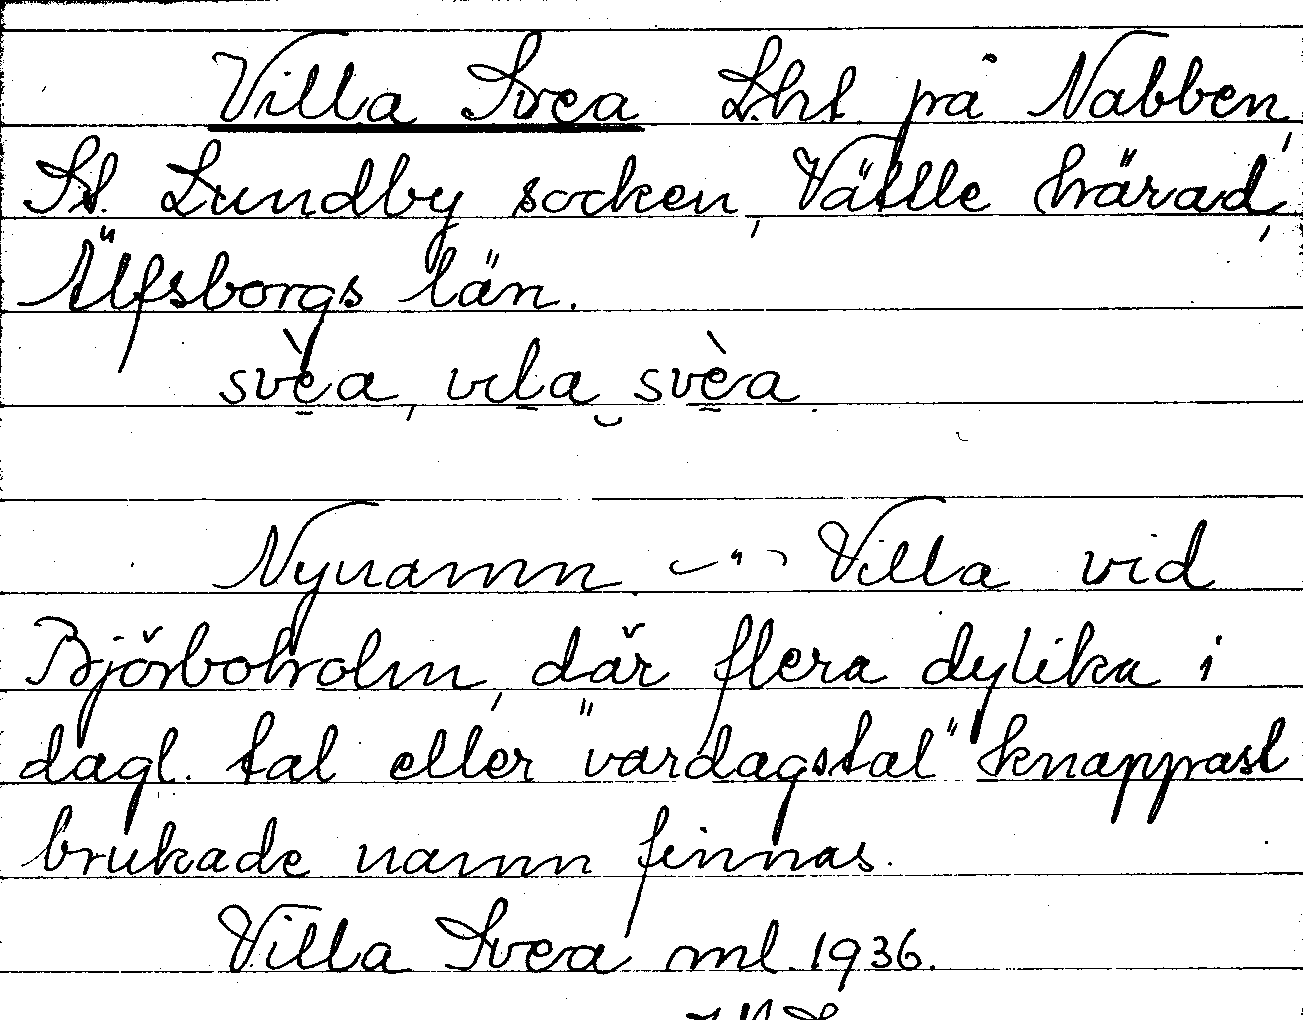 Villa Svea Lht. på Nabben,
St. Lundby socken, Vättle härad,
Älfsborgs län.
svèa, vila svèa.
Nynamn. Villa vid
Björboholm, där flera dylika i
dagl. tal eller "vardagstal" knappast
brukade namn finnas.
Villa Svea ml. 1936.